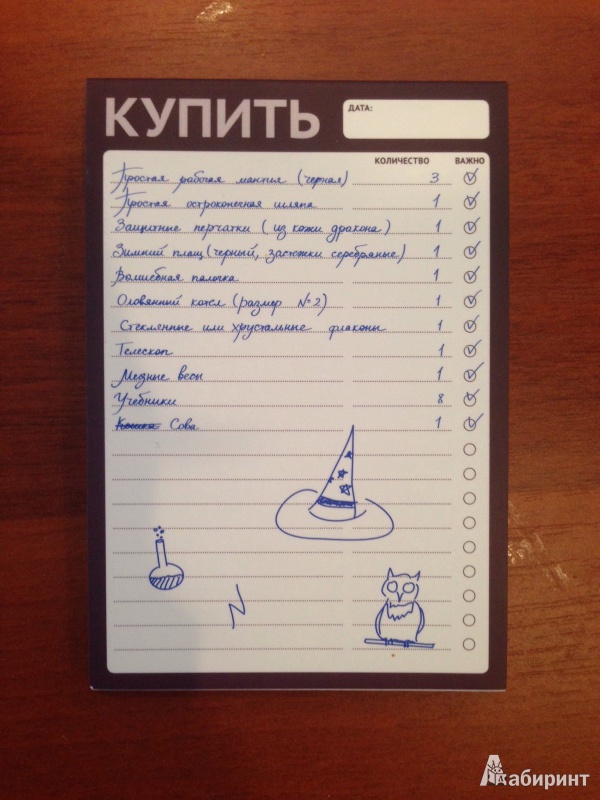 КУПИТЬ
ДАТА:
КОЛИЧЕСТВО ВАЖНО
Простая рабочая мантия (черная) 3
Простая остроконечная шляпа 1
Защитные перчатки (из кожи дракона) 1
Зимний плащ (черный, застежки серебряные) 1
Волшебная палочка 1
Оловянный котел (размер №2) 1
Стеклянные или хрустальные флаконы 1
Телескоп 1
Медные весы 1
Учебники 8
Кошка Сова 1
Лабиринт